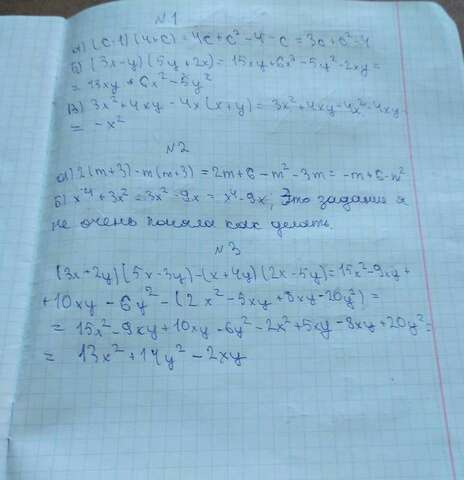 №1
а) (c-1)(4+c) = 4c + c² - 4 - c = 3c + c² - 4
б) (3x-y)(5y+2x) = 15xy + 6x² - 5y² - 2xy =
= 13xy + 6x² - 5y²
в) 3x² + 4xy - 4x(x+y) = 3x² + 4xy - 4x² - 4xy
= -x²
№2
а) 2(m+3) - m(m+3) = 2m + 6 - m² - 3m = -m + 6 - m²
б) x⁴ + 3x² = 3x² - 9x = x⁴ - 9x; Это задание я
не очень поняла как делать.
№3
(3x+2y)(5x-3y) - (x+4y)(2x-5y) = 15x² - 9xy +
+ 10xy - 6y² - (2x² - 5xy + 8xy - 20y²) =
= 15x² - 9xy + 10xy - 6y² - 2x² + 5xy - 8xy + 20y² =
= 13x² + 14y² - 2xy